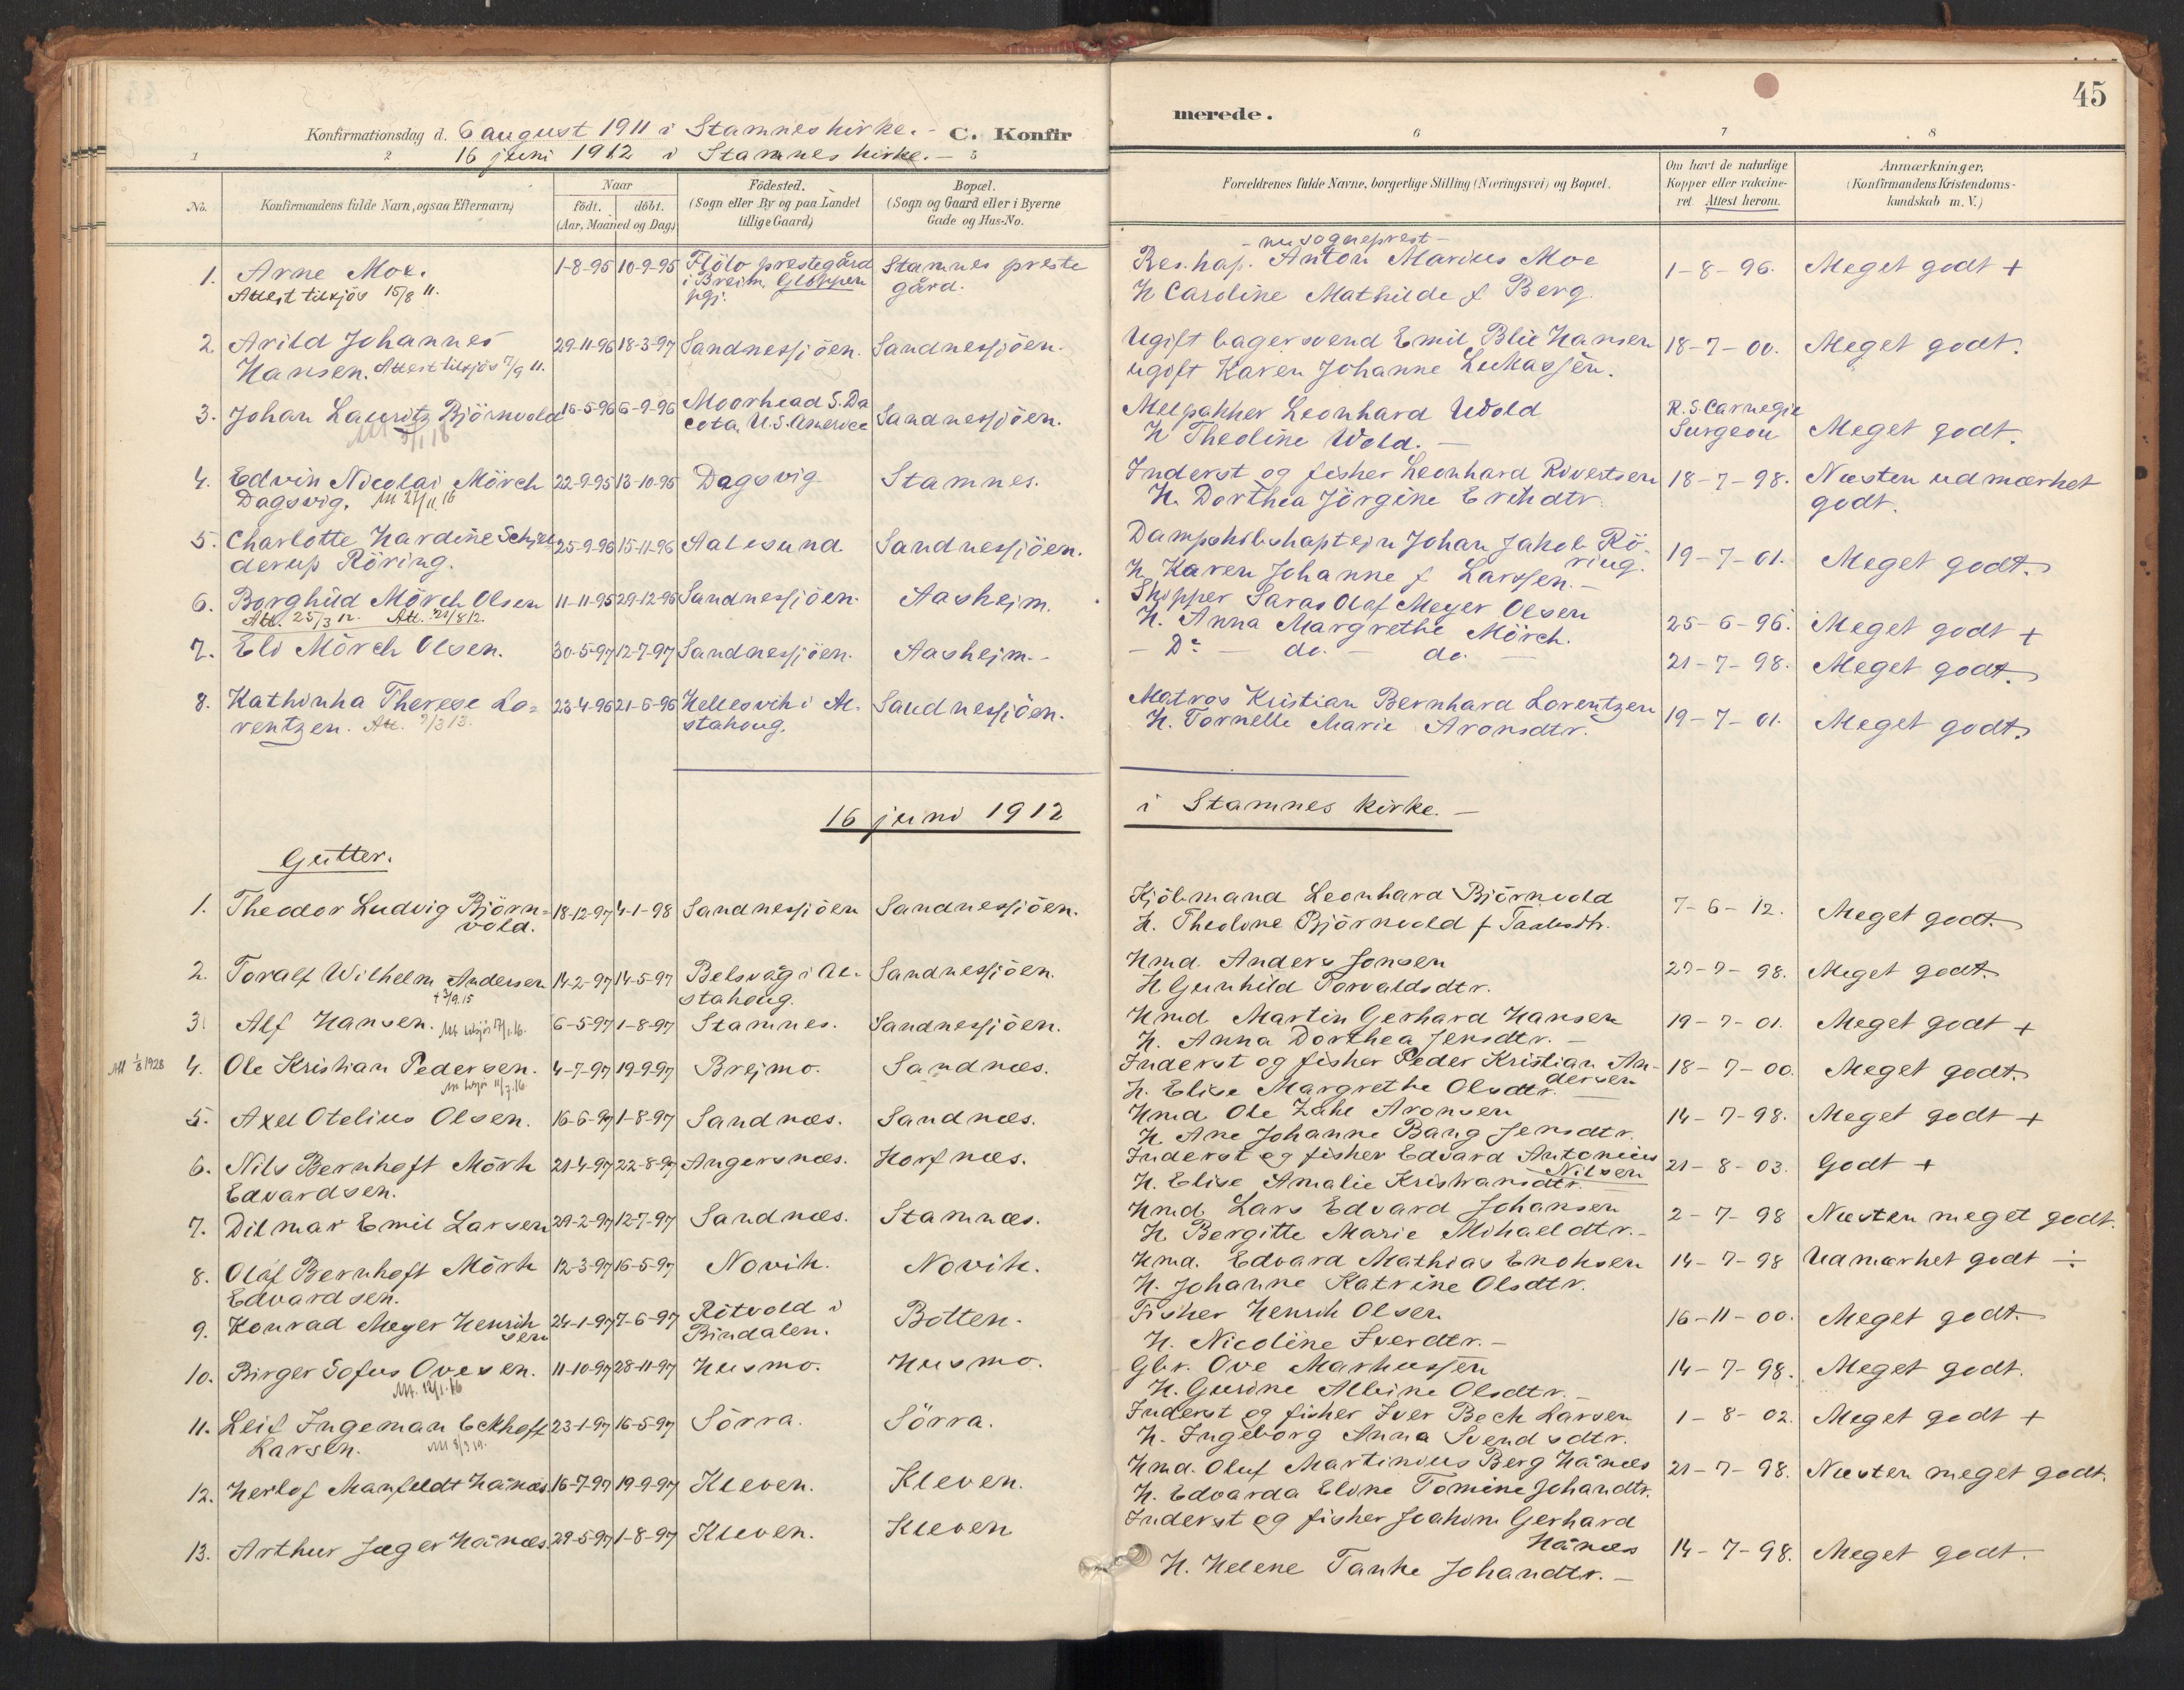 45
Konfirmationsdag d. 6 august 1911 i Stamnes kirke. - C. Konfir
merede.
16 juni 1912 i Stamnes kirke. -
1 2 3 6 7 8
No.
Konfirmandens fulde Navn, ogsaa Efternavn)
Naar
födt. döbt.
(Aar, Maaned og Dag)
Födested.
(Sogn eller By og paa Landet
tillige Gaard)
Bopæl.
(Sogn og Gaard eller i Byerne
Gade og Hus-No.
Forældrenes fulde Navne, borgerlige Stilling (Næringsvei) og Bopæl.
Om havt de naturlige
Kopper eller vakcine-
ret. Attest herom.
Anmærkninger,
(Konfirmandens Kristendoms-
kundskab m. V.)
- nu sogneprest -
1. Arne Moe. 1-8-95 10-9-95 Flölo prestegård Stamnes preste Res. kap. Anton Marius Moe 1-8-96. Meget godt +
Attest tilsjös 15/8 11. i Breim, Gloppen gård. K Caroline Mathilde f Berg
pgj.
2. Arild Johannes 29-11-96 18-3-97 Sandnessjöen. Sandnessjöen. Ugift bagersvend Emil Blix Hansen 18-7-00. Meget godt.
Hansen. Attest tilsjös 7/9 11. ugift Karen Johanne Lukassen.
3. Johan Lauritz Björnvold 16-5-96 6-9-96 Moorhead S. Da Sandnessjöen. Melpakker Leonhard Wold R. S. Carnegie
cota, U.S. America K Theoline Wold. - Surgeon Meget godt.
4. Edvin Nicolai Mörch 22-9-95 13-10-95 Dagsvig Stamnes. Inderst og fisker Leonhard Rivertsen 18-7-98. Næsten udmærket
Dagsvig. K. Dorthea Jörgine Erikdtr. godt.
5. Charlotte Hardine Schjel 25-9-96 15-11-96 Aalesund. Sandnessjöen. Dampskibskaptejn Johan Jakob Rö- 19-7-01. Meget godt.
derup Röring. ring.
K. Karen Johanne f Larssen. -
6. Borghild Mörch Olsen 11-11-95 29-12-95 Sandnessjöen. Aasheim. Skipper Saras Olaf Meyer Olsen 25-6-96. Meget godt +
Att. 25/3 12. Att. 21/8 12. K. Anna Margrethe Mörch.
7. Eli Mörch Olsen. 30-5-97 12-7-97 Sandnessjöen. Aasheim. - - Do - do. - do. - 21-7-98. Meget godt.
8. Kathinka Therese Lo= 23-4-96 21-6-96 Hellesvik i Al- Sandnessjöen. Matros Kristian Bernhard Lorentzen 19-7-01. Meget godt.
rentzen. Att. 9/3 13. stahoug. K. Tornelle Marie Aronsdtr.
16 juni 1912 i Stamnes kirke. -
Gutter.
1. Theodor Ludvig Björn= 18-12-97 4-1-98 Sandnessjöen Sandnessjöen. Kjöbmand Leonhard Björnvold 7-6-12. Meget godt.
vold. K. Theoline Björnvold f
2. Toralf Wilhelm Andersen 14-2-97 14-5-97 Belsvåg i Al- Sandnessjöen. Hmd. Anders Jonsen 27-7-98. Meget godt.
stahoug. K Gunhild Torvaldsdtr.
3. Alf Hansen. 6-5-97 1-8-97 Stamnes. Sandnessjöen. Hmd. Martin Gerhard Hansen 19-7-01. Meget godt +
K. Anna Dorthea Jensdtr. -
4. Ole Kristian Pedersen. 4-7-97 19-9-97 Brejmo. Sandnæs. Inderst og fisker Peder Kristian An- 18-7-00. Meget godt.
dersen
K. Elise Margrethe Olsdtr.
5. Axel Otelius Olsen. 16-6-97 1-8-97 Sandnæs. Sandnæs. Hmd. Ole Zahl Aronsen 14-7-98. Meget godt +
K. Ane Johanne Bang Jensdtr.
6. Nils Bernhoft Mörk 21-4-97 22-8-97 Angersnæs. Horfnæs. Inderst og fisker Edvard Antonius 21-8-03. Godt +
Edvardsen. Nilsen
K. Elise Amalie Kristiansdtr.
7. Dilmar Emil Larsen 29-2-97 12-7-97 Sandnæs. Stamnæs. Hmd. Lars Edvard Johansen 2-7-98 Næsten meget godt.
K. Bergitte Marie Mikaeldtr. -
8. Olaf Bernhoft Mörk 12-3-97 16-5-97 Novik. Novik. Hmd. Edvard Mathias Enoksen 14-7-98 Udmærket godt ÷
Edvardsen. K. Johanne Katrine Olsdtr.
9. Konrad Meyer Henrik 24-1-97 7-6-97 Rötvold i Botten. Fisker Henrik Olsen 16-11-00. Meget godt.
sen Bindalen. K. Nicoline Iverdtr. -
10. Birger Sofus Ovesen. 11-10-97 28-11-97 Husmo. Husmo. Gbr. Ove Markussen 14-7-98. Meget godt.
K. Gurine Albine Olsdtr. -
11. Leif Ingeman Eckhoff 23-1-97 16-5-97 Sörra. Sörra. Inderst og fisker Iver Bech Larsen 1-8-02. Meget godt +
Larsen. K. Ingeborg Anna Svendsdtr.
12. Herlof Manfeldt Hånæs 16-7-97 19-9-97 Kleven. Kleven. Hmd. Oluf Martinius Berg Hånæs 21-7-98. Næsten meget godt.
K. Edvarda Eline Tomine Johandtr.
13. Arthur Jæger Hånæs. 29-5-97 1-8-97 Kleven. Kleven Inderst og fisker Joakim Gerhard
Hånæs 14-7-98. Meget godt.
K. Helene Tanke Johandtr. -